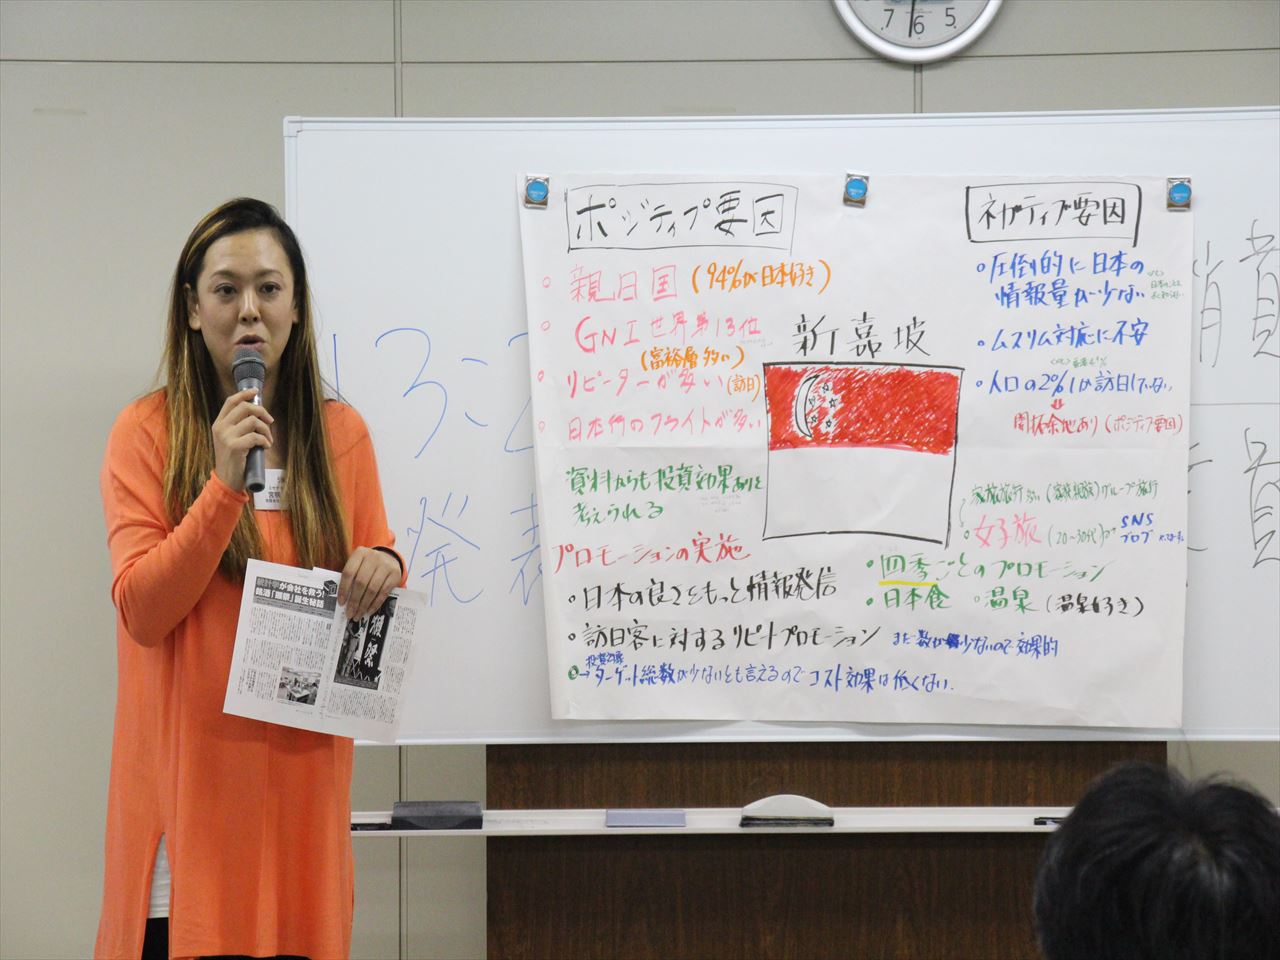 7 6 5
ポジティブ要因
・親日国(94%が日本好き)
・GNI世界第13位
(富裕層多い)
・リピーターが多い(訪日)
・日本行のフライトが多い
資料からも投資効果ありと
考えられる
プロモーションの実施
・日本の良さをもっと情報発信
・訪日客に対するリピートプロモーション また数が少ないので効果的
投資対象
→ターゲット総数が少ないとも言えるのでコスト効果は低くない.
新嘉坡
ネガティブ要因
・圧倒的に日本の
情報量が少ない
・ムスリム対応に不安
・人口の2%しか訪日していない
開拓余地あり(ポジティブ要因)
家族旅行多い(家族親族)グループ旅行
・女子旅(20~30代)
SNS
ブログ
・四季ごとのプロモーション
・日本食 ・温泉(温泉好き)
13:2
発表
消費
費
統計学が会社を救う!